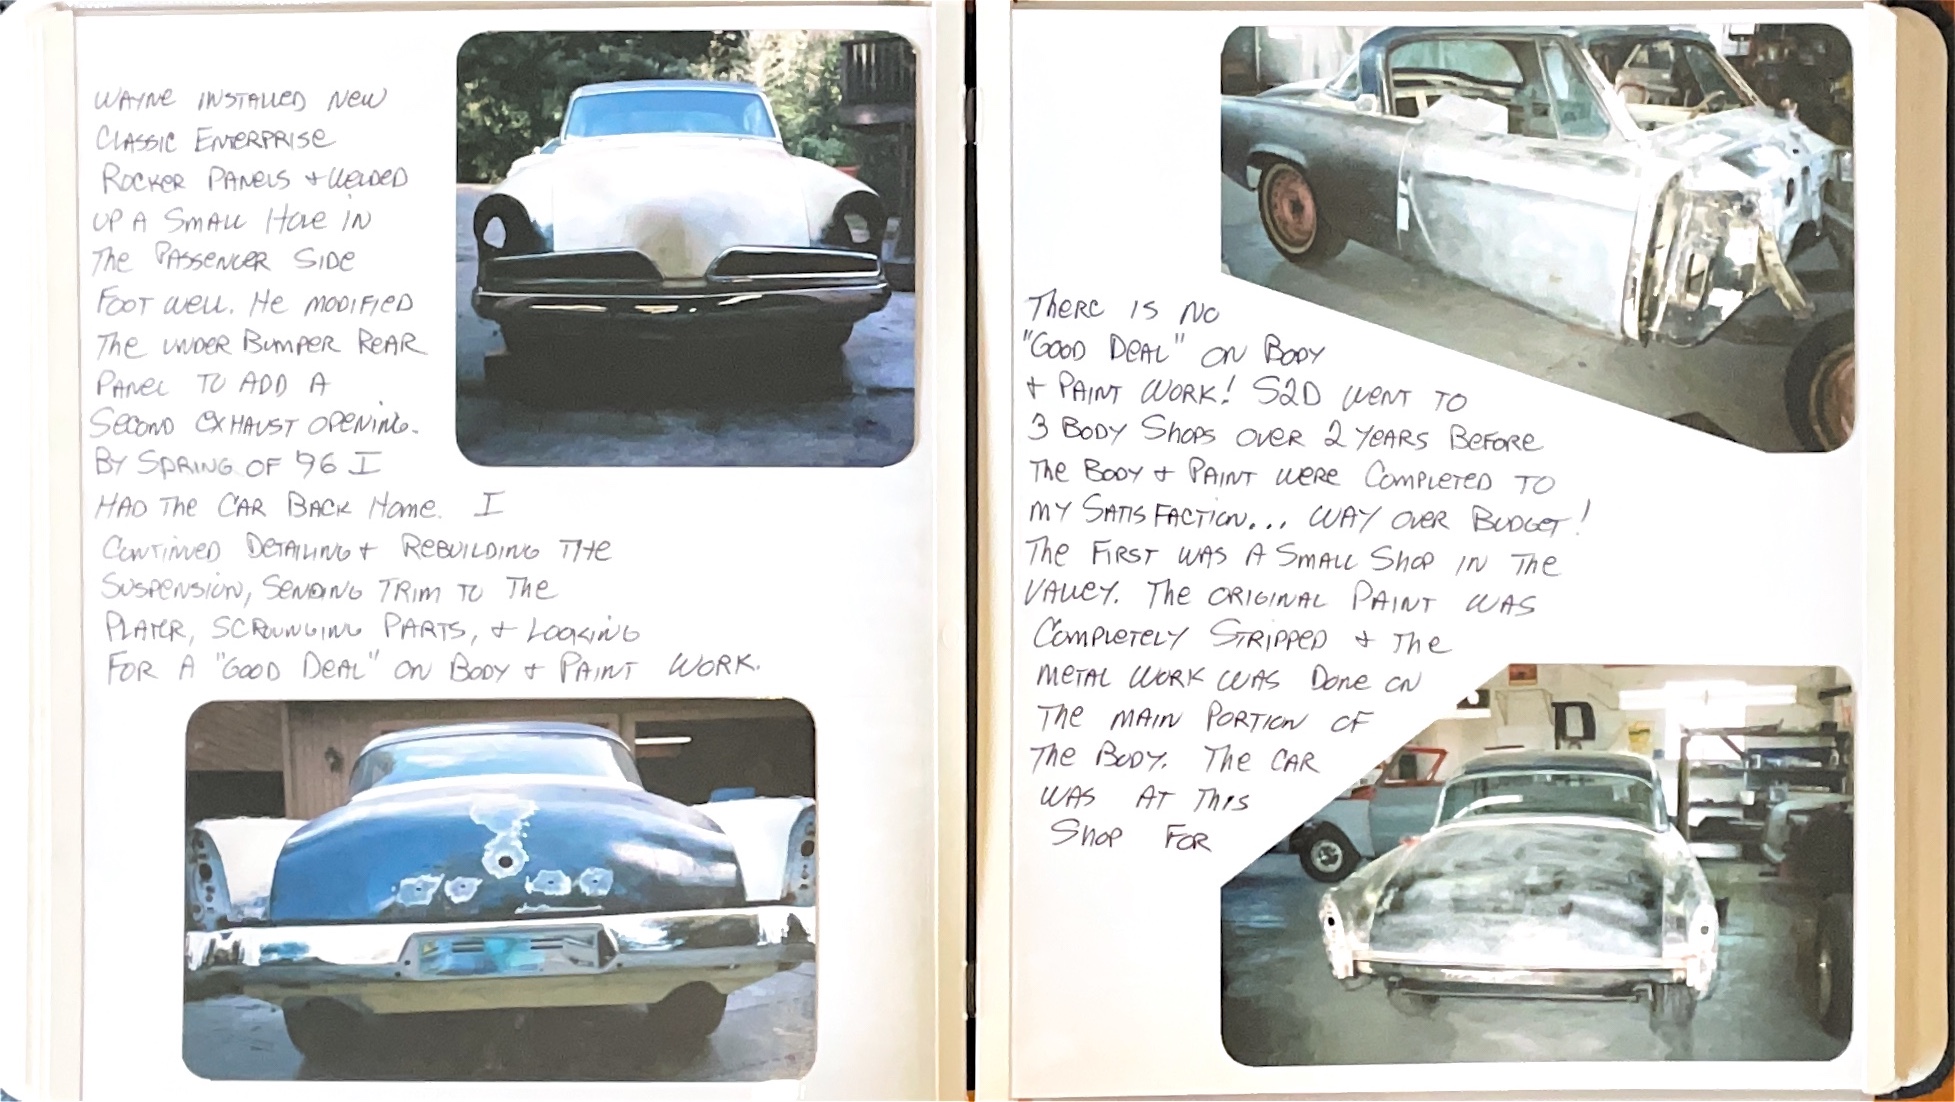 WAYNE INSTALLED NEW
CLASSIC ENTERPRISE
ROCKER PANELS + WELDED
UP A SMALL HOLE IN
THE PASSENGER SIDE
FOOT WELL. HE MODIFIED
THE UNDER BUMPER REAR
PANEL TO ADD A
SECOND EXHAUST OPENING.
BY SPRING OF '96 I
HAD THE CAR BACK HOME. I
CONTINUED DETAILING + REBUILDING THE
SUSPENSION, SENDING TRIM TO THE
PLATER, SCROUNGING PARTS, + LOOKING
FOR A "GOOD DEAL" ON BODY + PAINT WORK.
THERE IS NO
"GOOD DEAL" ON BODY
+ PAINT WORK! S2D WENT TO
3 BODY SHOPS OVER 2 YEARS BEFORE
THE BODY + PAINT WERE COMPLETED TO
MY SATISFACTION... WAY OVER BUDGET!
THE FIRST WAS A SMALL SHOP IN THE
VALLEY. THE ORIGINAL PAINT WAS
COMPLETELY STRIPPED + THE
METAL WORK WAS DONE ON
THE MAIN PORTION OF
THE BODY. THE CAR
WAS AT THIS
SHOP FOR